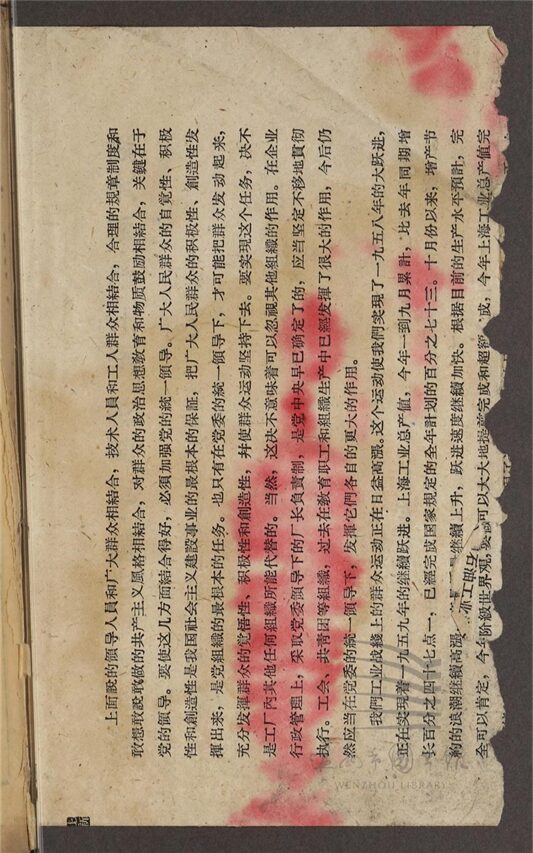 上面說的領导人員和广大群众相結合，技术人員和工人群众相結合，合理的規章制度和
敢想敢說敢做的共产主义風格相結合，对群众的政治思想教育和物质鼓励相結合，关鍵在于
党的領导。要使这几方面結合得好，必須加强党的統一領导。广大人民群众的自覚性、积极
性和創造性是我国社会主义建設事业的最根本的保証，把广大人民群众的积极性、創造性发
揮出来，是党組織的最根本的任务。也只有在党委的統一領导下，才可能把群众发动起来，
充分发揮群众的覚悟性、积极性和創造性，幷使群众运动坚持下去。要实現这个任务，决不
是工厂內其他任何組織所能代替的。当然，这决不意味着可以忽視其他組織的作用。在企业
行政管理上，采取党委領导下的厂长負責制，是党中央早已确定了的，应当坚定不移地貫彻
执行。工会、共青团等組織，过去在教育职工和組織生产中已經发揮了很大的作用，今后仍
然应当在党委的統一領导下，发揮它們各自的更大的作用。
我們工业战綫上的群众运动正在日益高漲。这个运动使我們实現了一九五八年的大跃进，
正在实現着一九五九年的继續跃进。上海工业总产值，今年一到九月累計，比去年同期增
长百分之四十七点一，已經完成国家規定的全年計划的百分之七十三。十月份以来，增产节
約的浪潮继續高漲，继續上升，跃进速度继續加快。根据目前的生产水平預計，完
全可以肯定，今年上海工业总产值完
亦工职
阶級世界观，
可以大大地提前完成和超
或，
WENZHOU LIBRARY